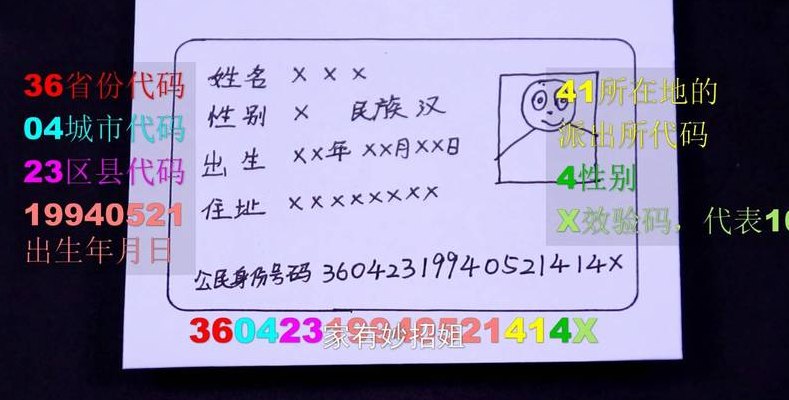 36省份代码
04城市代码
23区县代码
19940521
出生年月日
姓名 X X X
性别 X 民族 汉
出生 XX年 XX月XX日
住址 XXXXXXXX
公民身份号码 36042319940521414X
41所在地的
派出所代码
4性别
X效验码，代表10
36042319940521414X
家有妙招姐